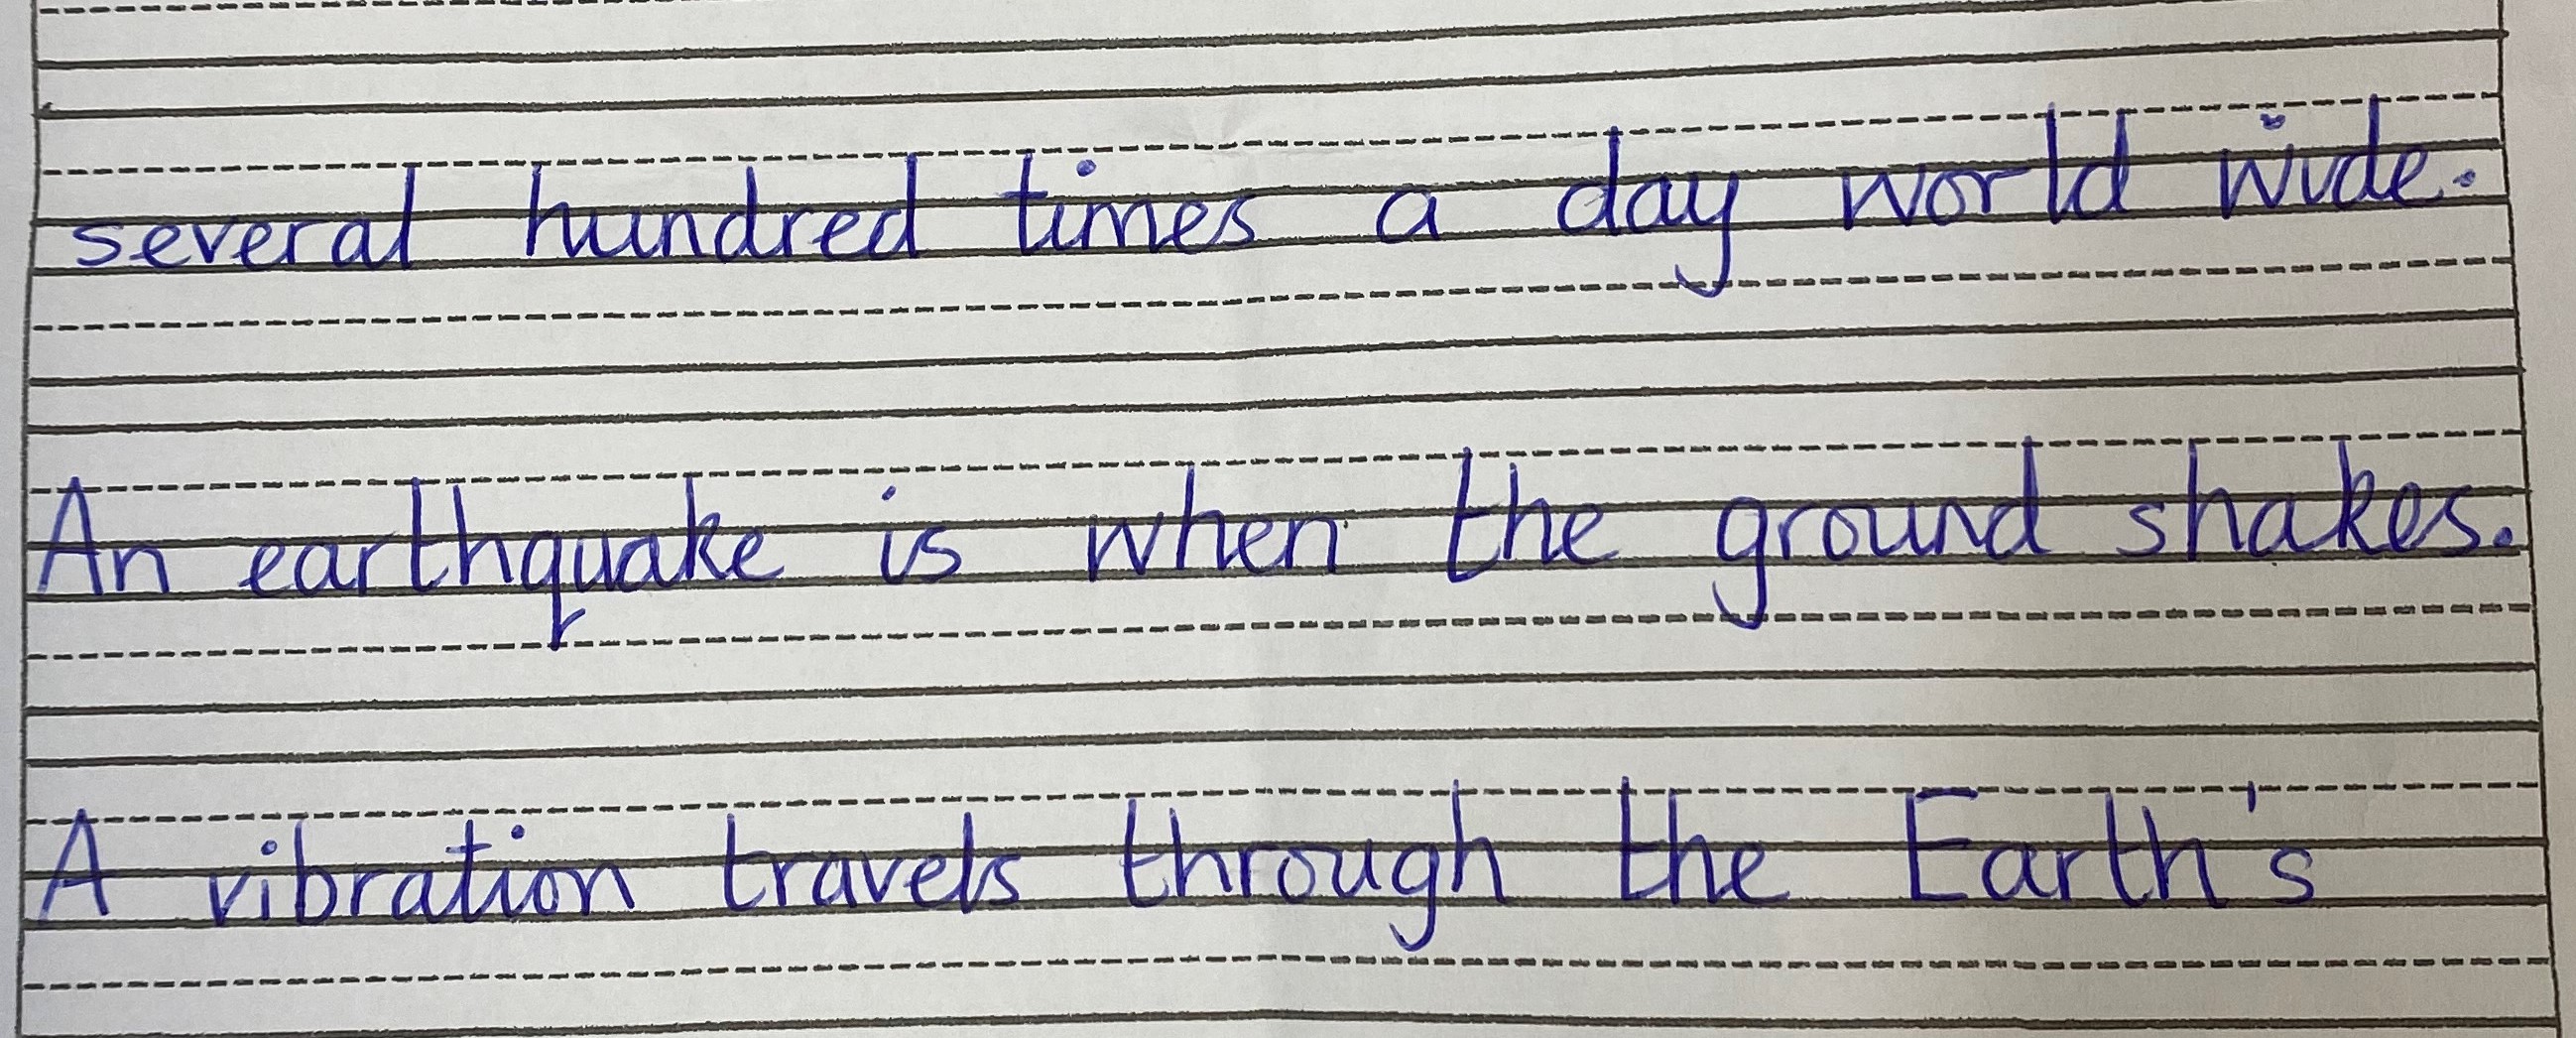 several hundred times a day world wide.
An earthquake is when the ground shakes.
A vibration travels through the Earth's